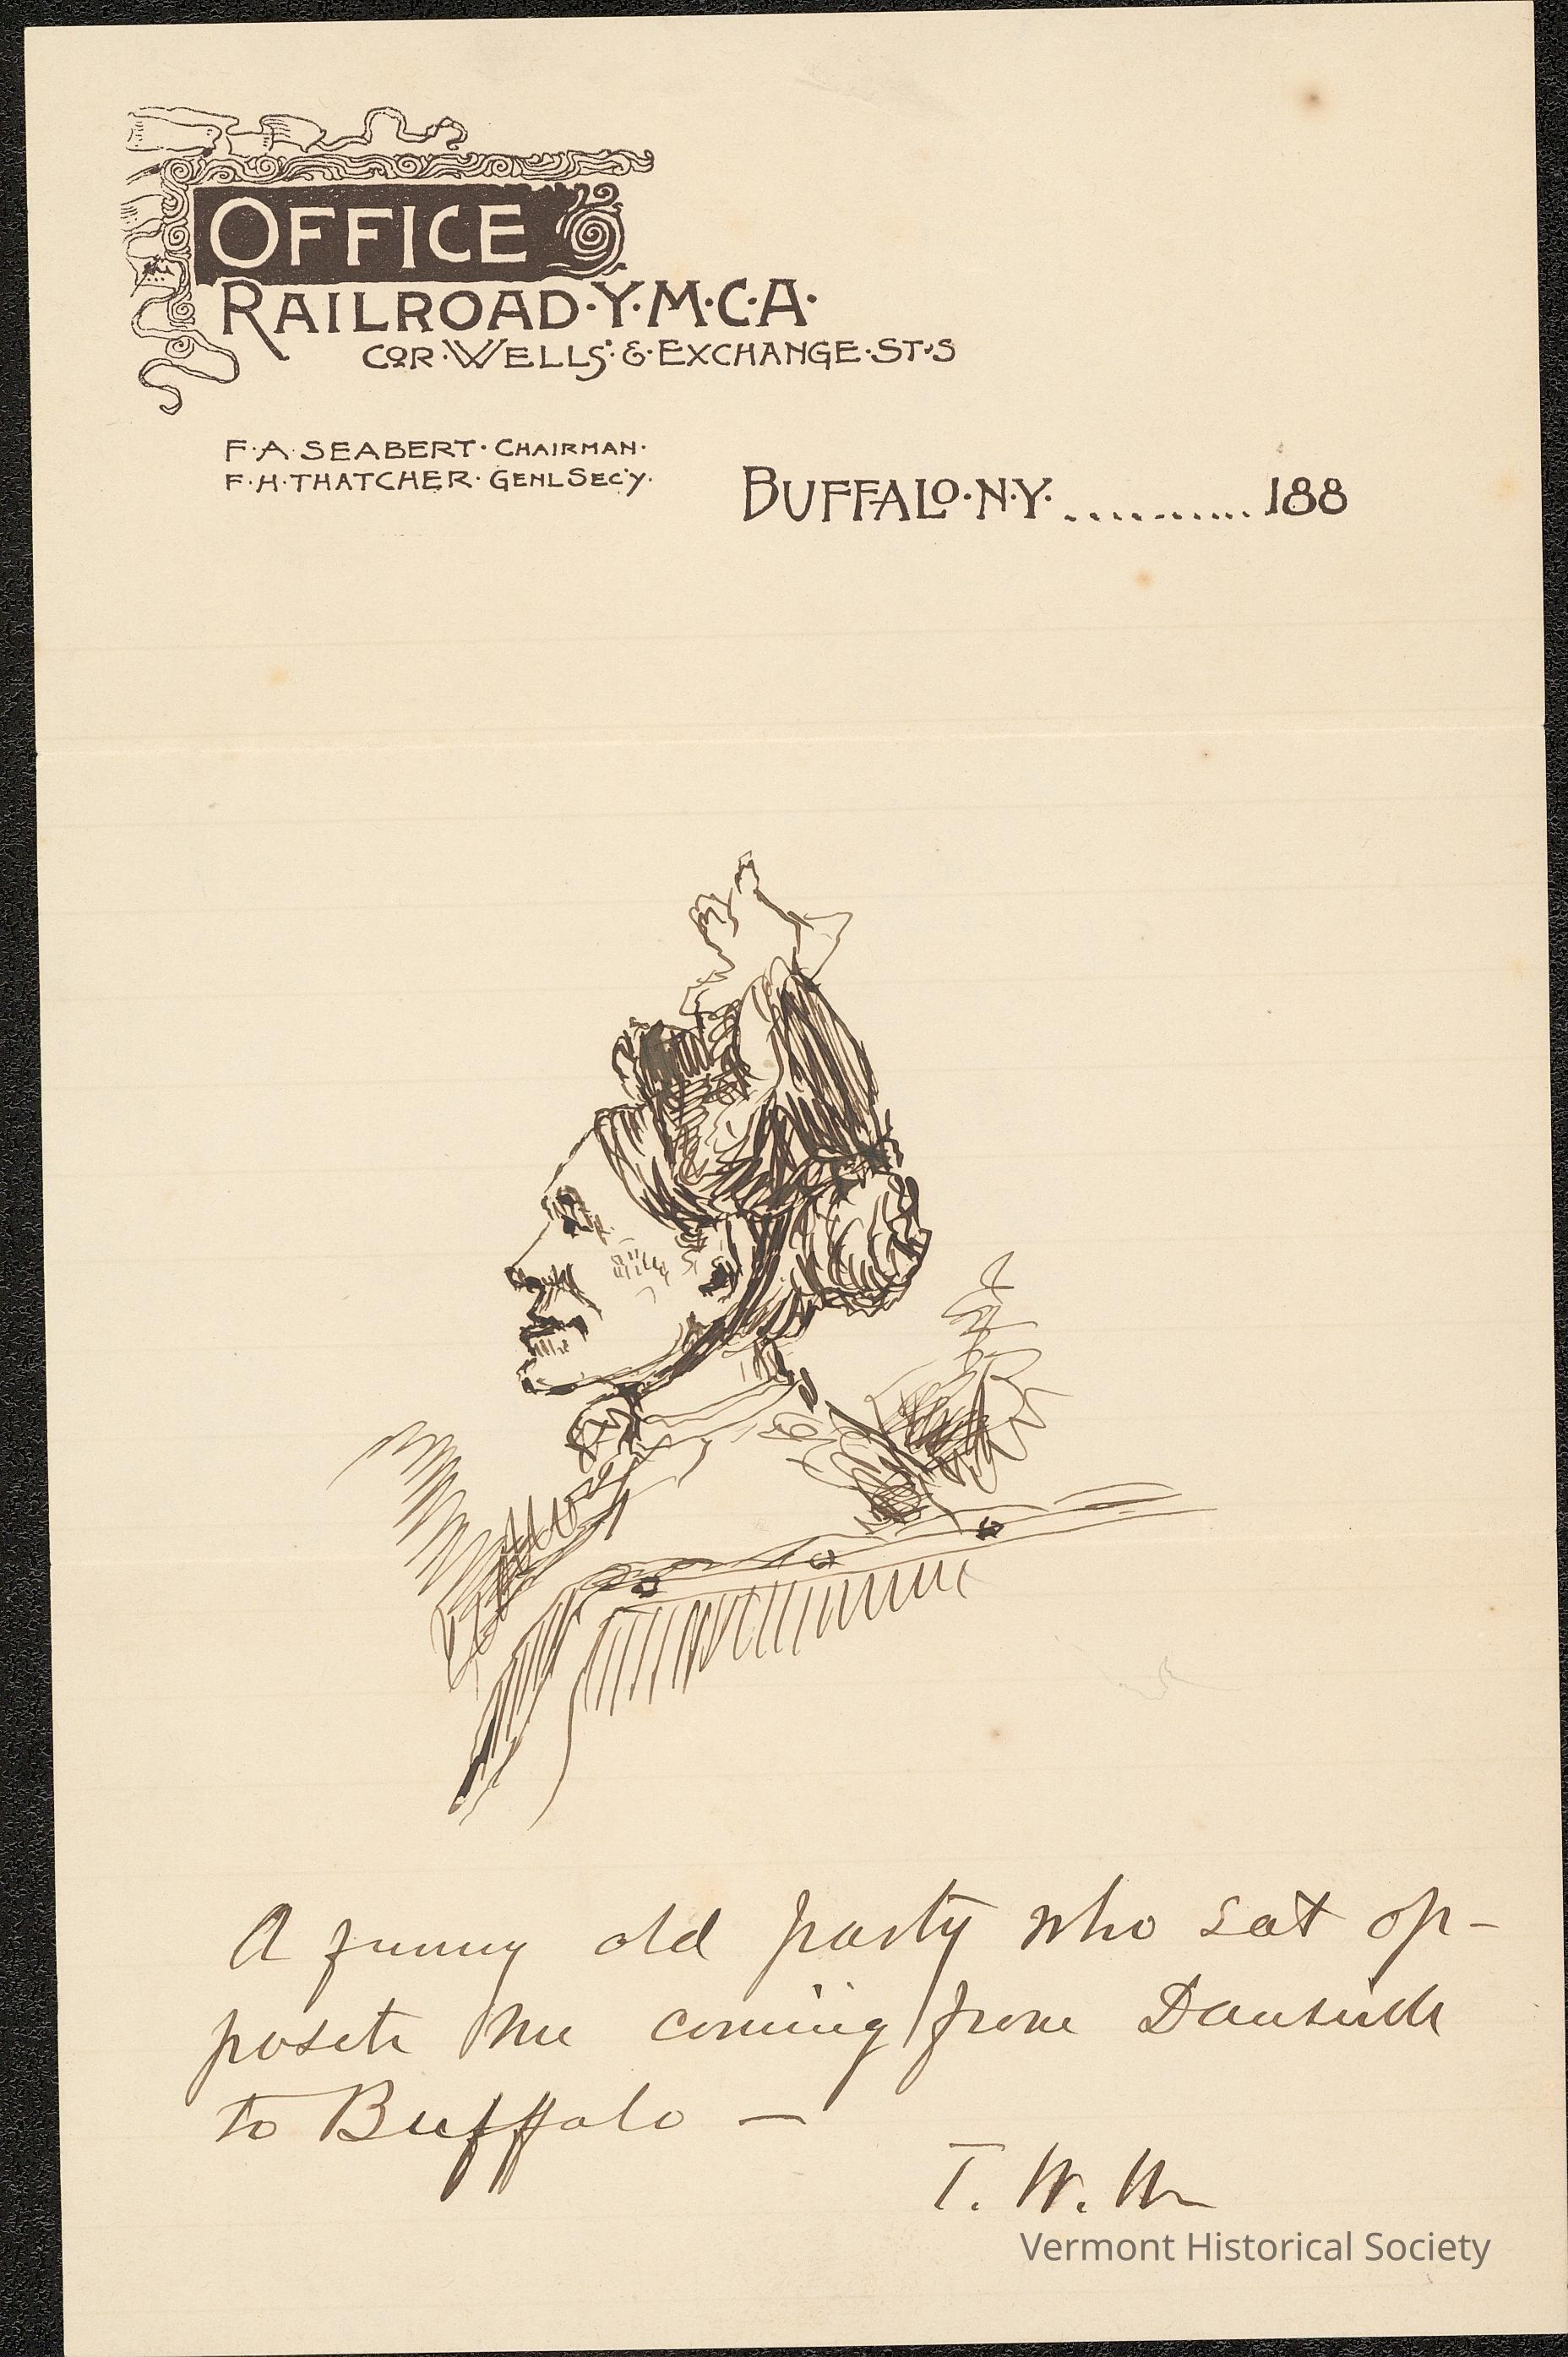 OFFICE
RAILROAD·Y·M·C·A·
COR·WELLS·&·EXCHANGE·ST·S
F·A·SEABERT·CHAIRMAN·
F·H·THATCHER·GENL SEC'Y·
BUFFALO·N·Y· ........... 188
A funny old party who sat op-
posite me coming from
to Buffalo —
T. W.
Vermont Historical Society